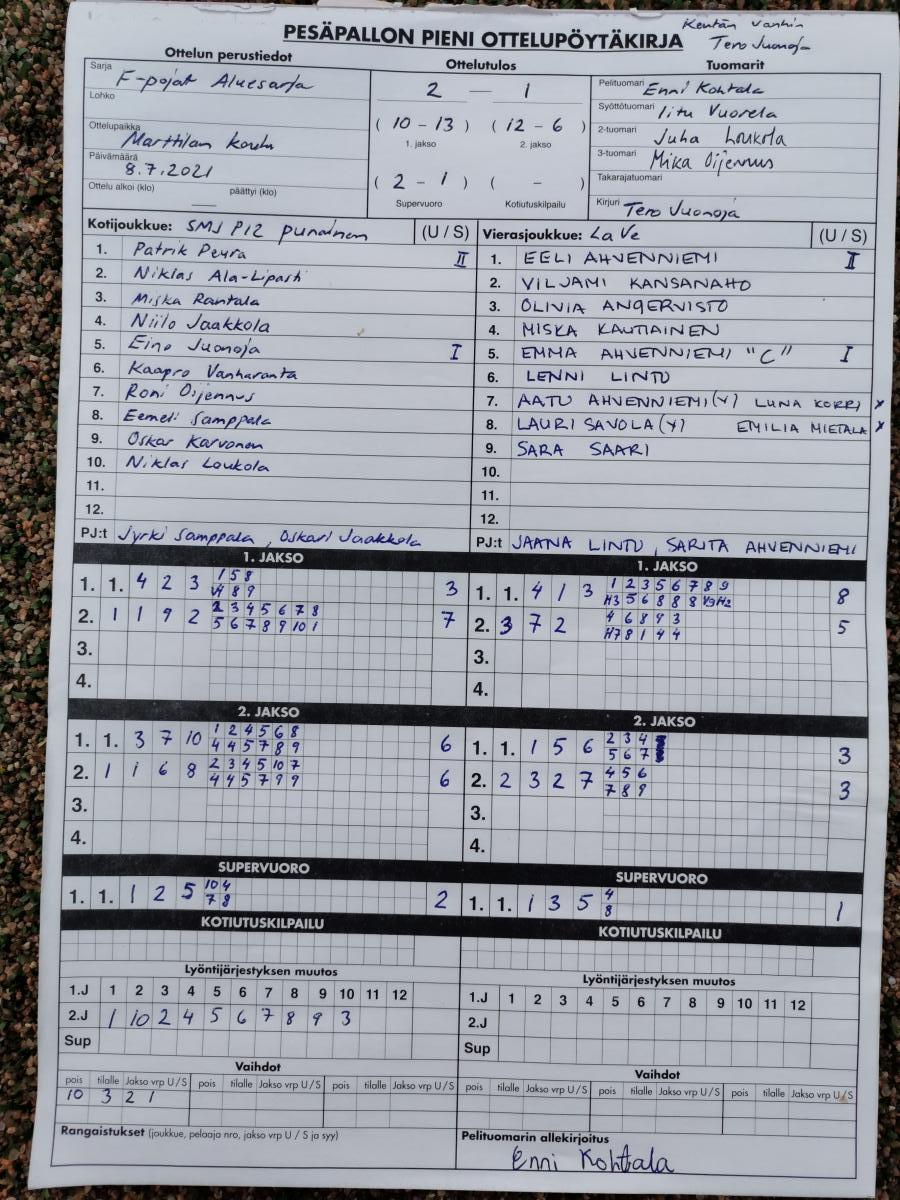 Kentän vanhin
PESÄPALLON PIENI OTTELUPÖYTÄKIRJA Tero Juonoja
Ottelun perustiedot Ottelutulos Tuomarit
Sarja F-pojat Aluesarja
Lohko
Ottelupaikka Marttilan koulu
Päivämäärä 8.7.2021
Ottelu alkoi (klo) — päättyi (klo)
2 — 1
( 10 - 13 ) ( 12 - 6 )
1. jakso 2. jakso
( 2 - 1 ) ( - )
Supervuoro Kotiutuskilpailu
Pelituomari Enni Kohtala
Syöttötuomari Iitu Vuorela
2-tuomari Juha Loukola
3-tuomari Mika Oijennus
Takarajatuomari
Kirjuri Tero Juonoja
Kotijoukkue: SMJ P12 punainen (U / S)
1. Patrik Peura II
2. Niklas Ala-Lipasti
3. Miska Rantala
4. Niilo Jaakkola
5. Eino Juonoja I
6. Kaapro Vanharanta
7. Roni Oijennus
8. Eemeli Samppala
9. Oskar Karvonen
10. Niklas Loukola
11.
12.
PJ:t Jyrki Samppala, Oskari Jaakkola
Vierasjoukkue: LaVe (U / S)
1. EELI AHVENNIEMI I
2. VILJAMI KANSANAHO
3. OLIVIA ANGERVISTO
4. MISKA KAUTIAINEN
5. EMMA AHVENNIEMI "C" I
6. LENNI LINTU
7. AATU AHVENNIEMI (Y) LUNA KORRI x
8. LAURI SAVOLA (Y) EMILIA MIETALA x
9. SARA SAARI
10.
11.
12.
PJ:t JAANA LINTU, SARITA AHVENNIEMI
1. JAKSO
1. 1. 4 2 3 1 5 8 3
V1 8 9
2. 1 1 9 2 2 3 4 5 6 7 8 7
5 6 7 8 9 10 1
3.
4.
1. JAKSO
1. 1. 4 1 3 1 2 3 5 6 7 8 9 8
H3 5 6 8 8 8 V9 H2
2. 3 7 2 4 6 8 9 3 5
H7 8 1 4 4
3.
4.
2. JAKSO
1. 1. 3 7 10 1 2 4 5 6 8 6
4 4 5 7 8 9
2. 1 1 6 8 2 3 4 5 10 7 6
4 4 5 7 9 9
3.
4.
2. JAKSO
1. 1. 1 5 6 2 3 4 3
5 6 7
2. 2 3 2 7 4 5 6 3
7 8 9
3.
4.
SUPERVUORO
1. 1. 1 2 5 10 4 2
7 8
SUPERVUORO
1. 1. 1 3 5 4 1
8
KOTIUTUSKILPAILU
KOTIUTUSKILPAILU
Lyöntijärjestyksen muutos
1.J 1 2 3 4 5 6 7 8 9 10 11 12
2.J 1 10 2 4 5 6 7 8 9 3
Sup
Lyöntijärjestyksen muutos
1.J 1 2 3 4 5 6 7 8 9 10 11 12
2.J
Sup
Vaihdot
pois tilalle Jakso vrp U / S pois tilalle Jakso vrp U / S pois tilalle Jakso vrp U / S
10 3 2 1
Vaihdot
pois tilalle Jakso vrp U / S pois tilalle Jakso vrp U / S pois tilalle Jakso vrp U / S
Rangaistukset (joukkue, pelaaja nro, jakso vrp U / S ja syy)
Pelituomarin allekirjoitus
Enni Kohtala